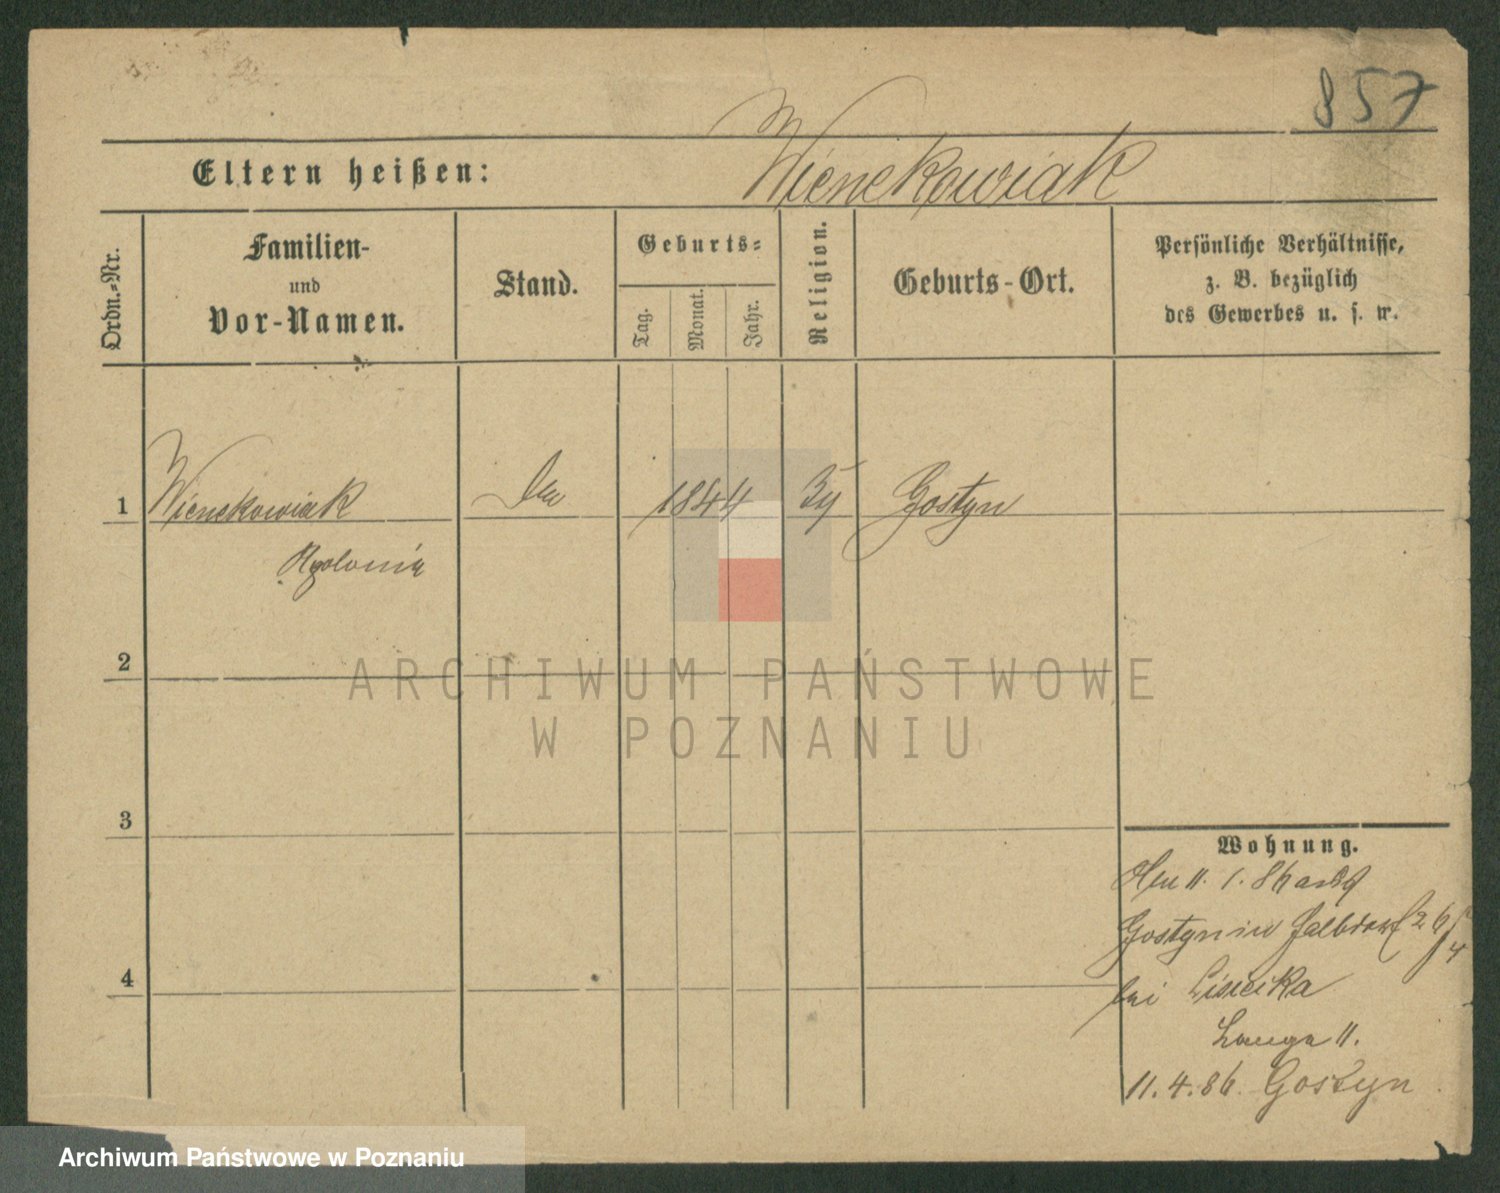 857
Eltern heißen: Wienckowiak
Ordn.-Nr.
Familien-
und
Vor-Namen.
Stand.
Geburts-
Tag.
Monat.
Jahr.
Religion.
Geburts-Ort.
Persönliche Verhältnisse,
z. B. bezüglich
des Gewerbes u. s. w.
1 Wienckowiak 1844 Gostyn
Apolonia
2
3
4
Wohnung.
11. 1. 86
Gostyn in 26/4
bei
11.
11. 4. 86. Gostyn
ARCHIWUM PAŃSTWOWE
W POZNANIU
Archiwum Państwowe w Poznaniu